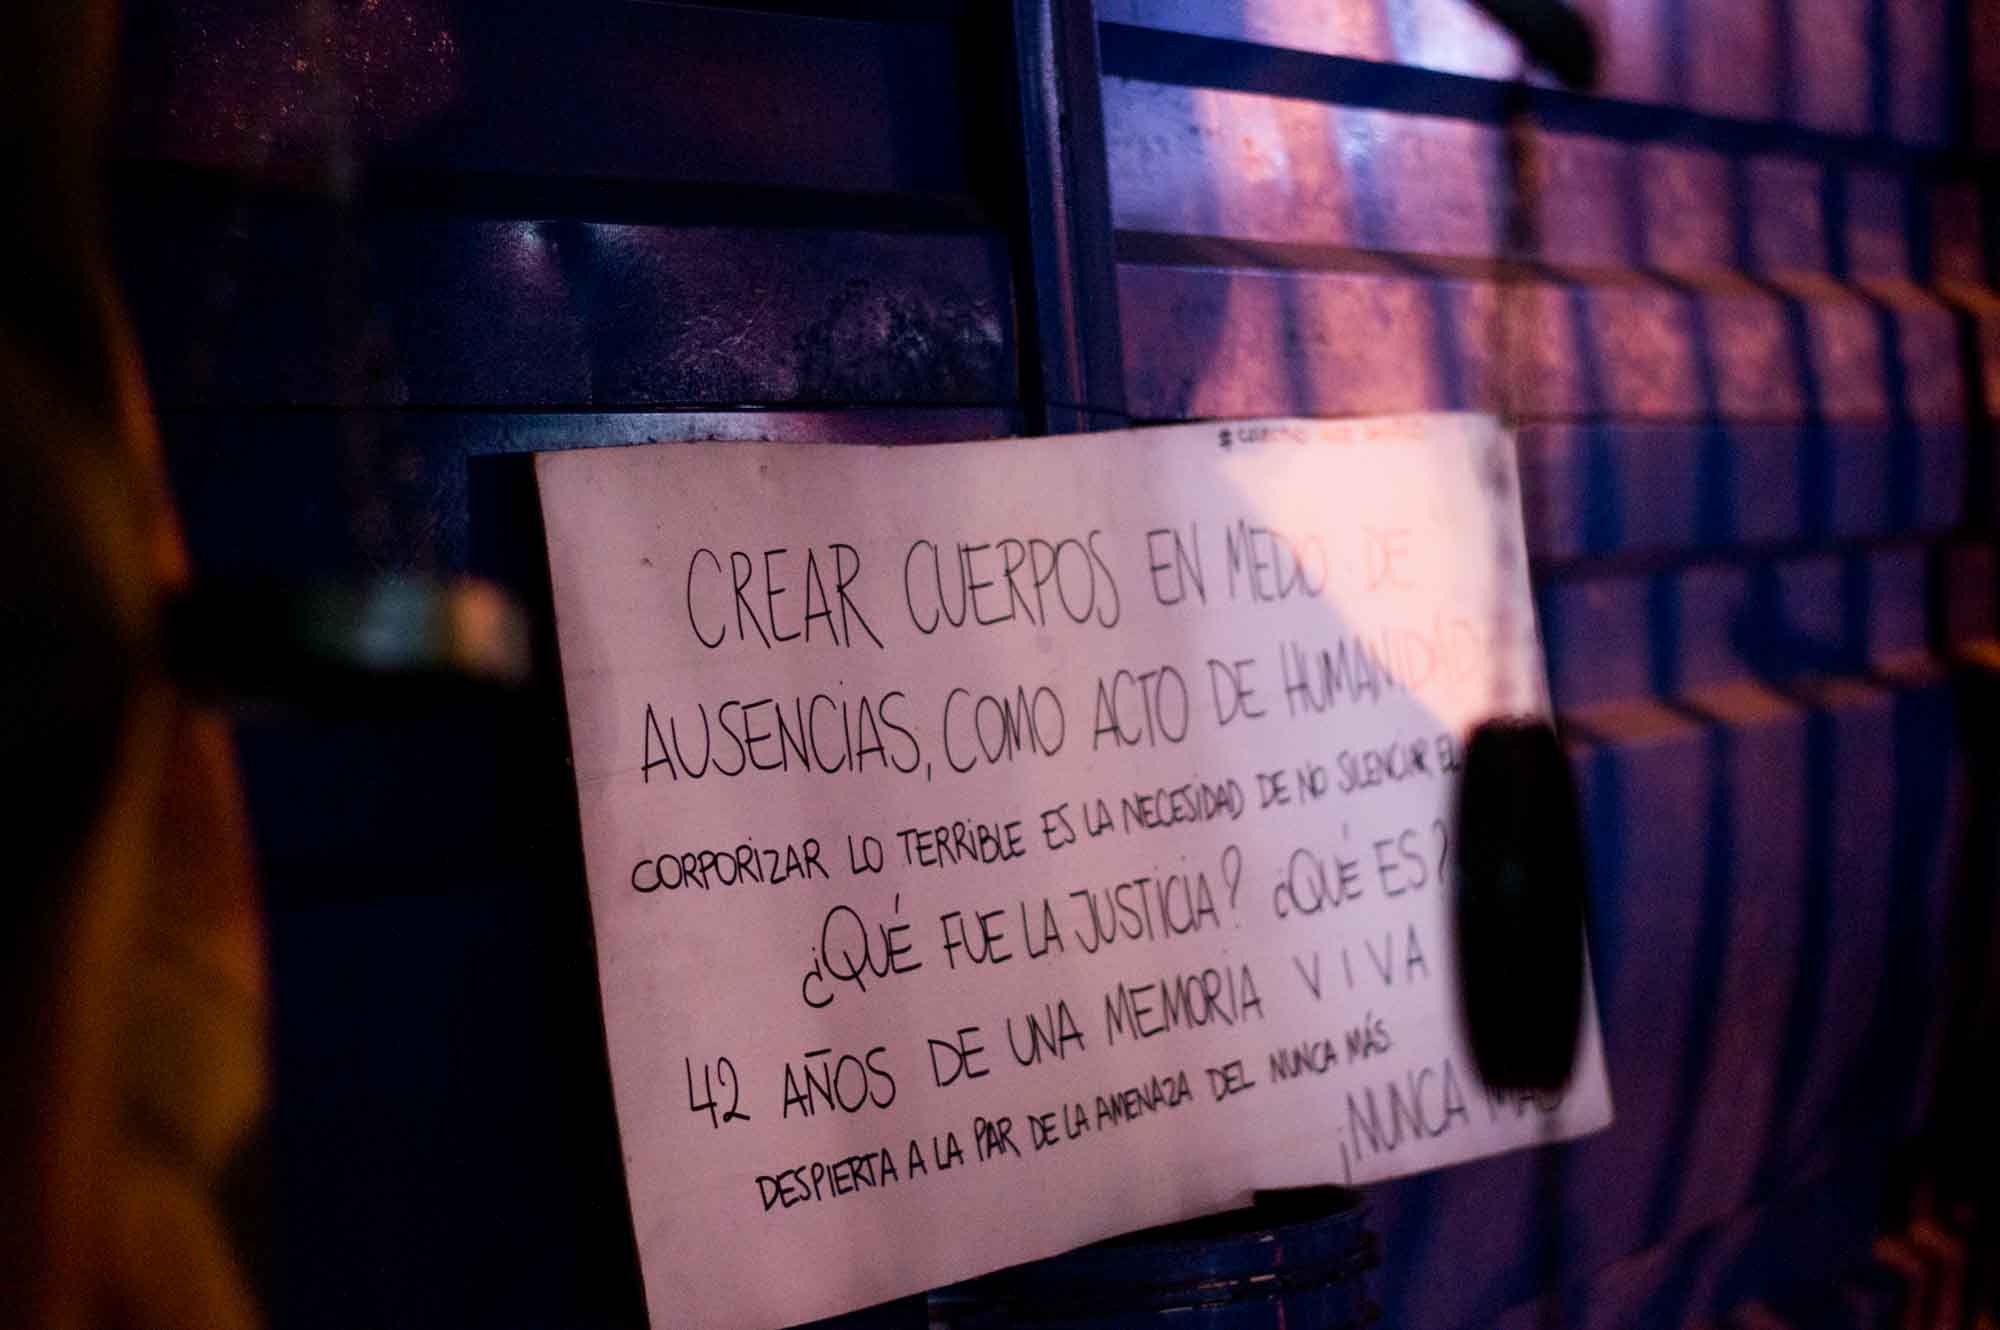 CREAR CUERPOS EN MEDIO DE
AUSENCIAS, COMO ACTO DE HUMANIDAD
CORPORIZAR LO TERRIBLE ES LA NECESIDAD DE NO SILENCIAR EL
¿QUÉ FUE LA JUSTICIA? ¿QUÉ ES?
42 AÑOS DE UNA MEMORIA VIVA
DESPIERTA A LA PAR DE LA AMENAZA DEL NUNCA MÁS.
¡NUNCA MÁS